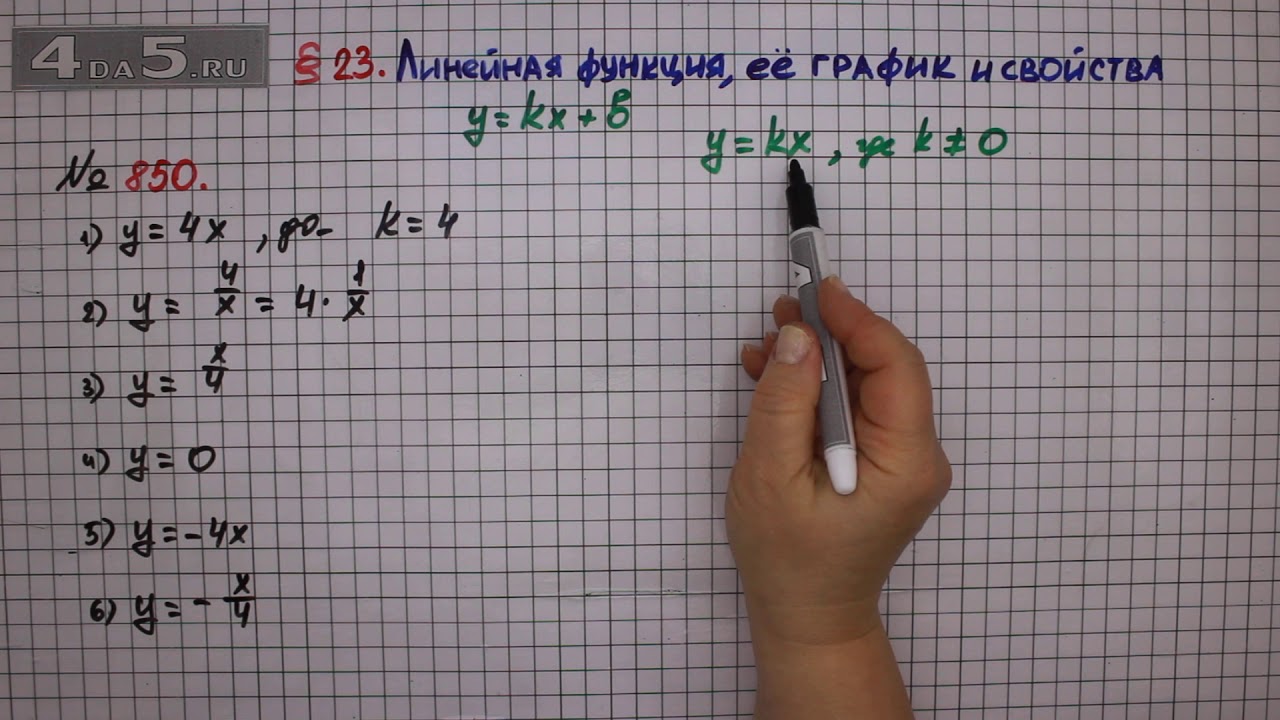 4DA5.RU
§ 23. Линейная функция, её график и свойства
y = kx + b
y = kx, где k ≠ 0
№ 850.
1) y = 4x, да- k = 4
2) y = 4/x = 4 · 1/x
3) y = x/4
4) y = 0
5) y = -4x
6) y = - x/4